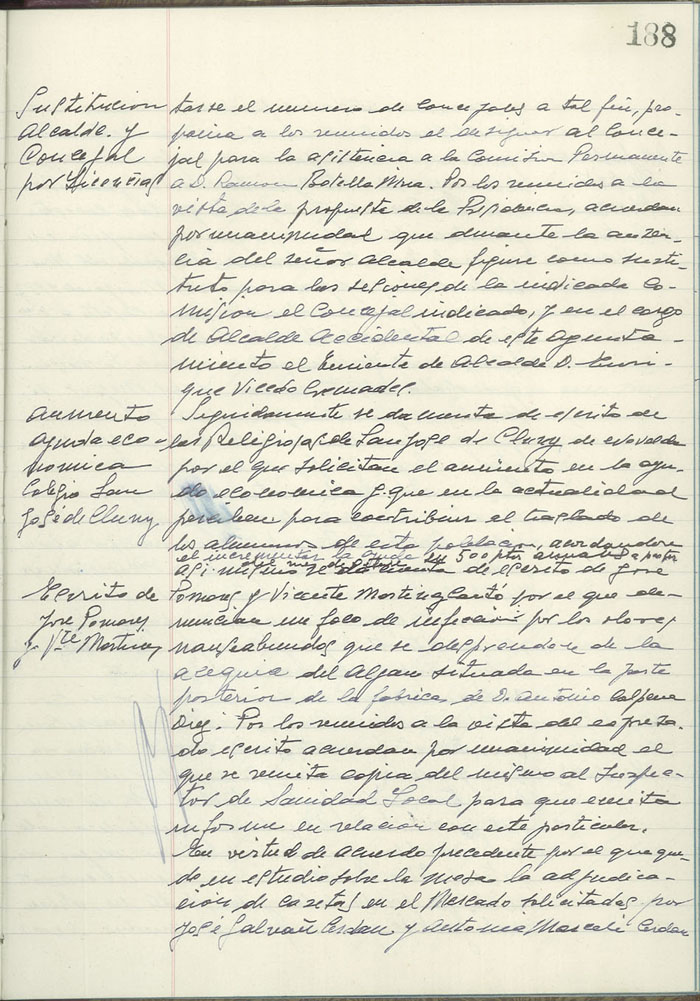 188
Sustitucion
Alcalde. y
Concejal
por Licencias
tarse el numero de concejales a tal fin, pro-
 a los reunidos el designar al Conce-
jal para la asistencia a la Comisión Permanente
a D. Ramon Botella Mira. Por los reunidos a la
vista de la propuesta de la Presidencia, acuerdan
por unanimidad que durante la ausen-
cia del señor Alcalde figure como susti-
tuto para las sesiones de la indicada Co-
mision el Concejal indicado, y en el cargo
de Alcalde Accidental de este Ayunta-
miento el Teniente de Alcalde D. Enri-
que Vicedo Cremades.
Aumento
ayuda eco-
nomica
Colegio San
José de Cluny
Seguidamente se da cuenta de escrito de
las Religiosas de San José de Cluny de Novelda
por el que solicitan el aumento en la ayu-
da economica q. que en la actualidad
perciben para contribuir el traslado de
los alumnos de esta poblacion, acordandose
el incrementar la ayuda en 500 ptas a partir
asi mismo se da cuenta de escrito de Jose
Escrito de
Jose Pomares
y Vte Martinez
Pomares y Vicente Martinez Cantó por el que de-
nuncian un foco de infeccion por los olores
nauseabundos que se desprenden de la
acequia del situada en la parte
posterior de la fabrica de D. Antonio Calpena
Diez. Por los reunidos a la vista del expresa-
do escrito acuerdan por unanimidad el
que se remita copia del mismo al Inspec-
tor de Sanidad Local para que emita
informe en relacion con este particular.
En virtud de acuerdo precedente por el que que-
da en estudio sobre la mesa la adjudica-
ción de casetas en el Mercado solicitadas por
José Galvañ Cerdan y Antonia Cerdan